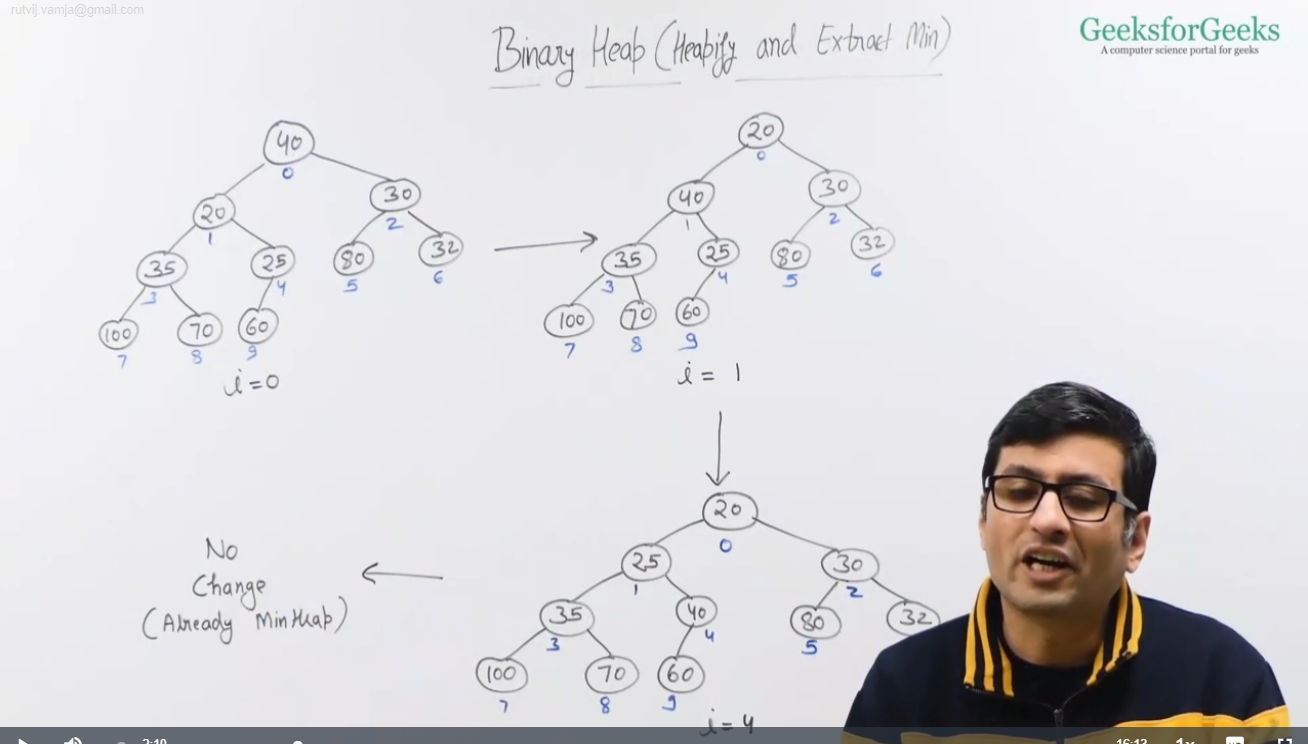 rutvij.vamja@gmail.com
Binary Heap (Heapify and Extract Min)
GeeksforGeeks
A computer science portal for geeks
40
0
20
1
30
2
35
3
25
4
80
5
32
6
100
7
70
8
60
9
i=0
20
0
40
1
30
2
35
3
25
4
80
5
32
6
100
7
70
8
60
9
i= 1
20
0
25
1
30
2
35
3
40
4
80
5
32
100
7
70
8
60
9
i=4
No
Change
(Already MinHeap)
2:10
16:13
1x